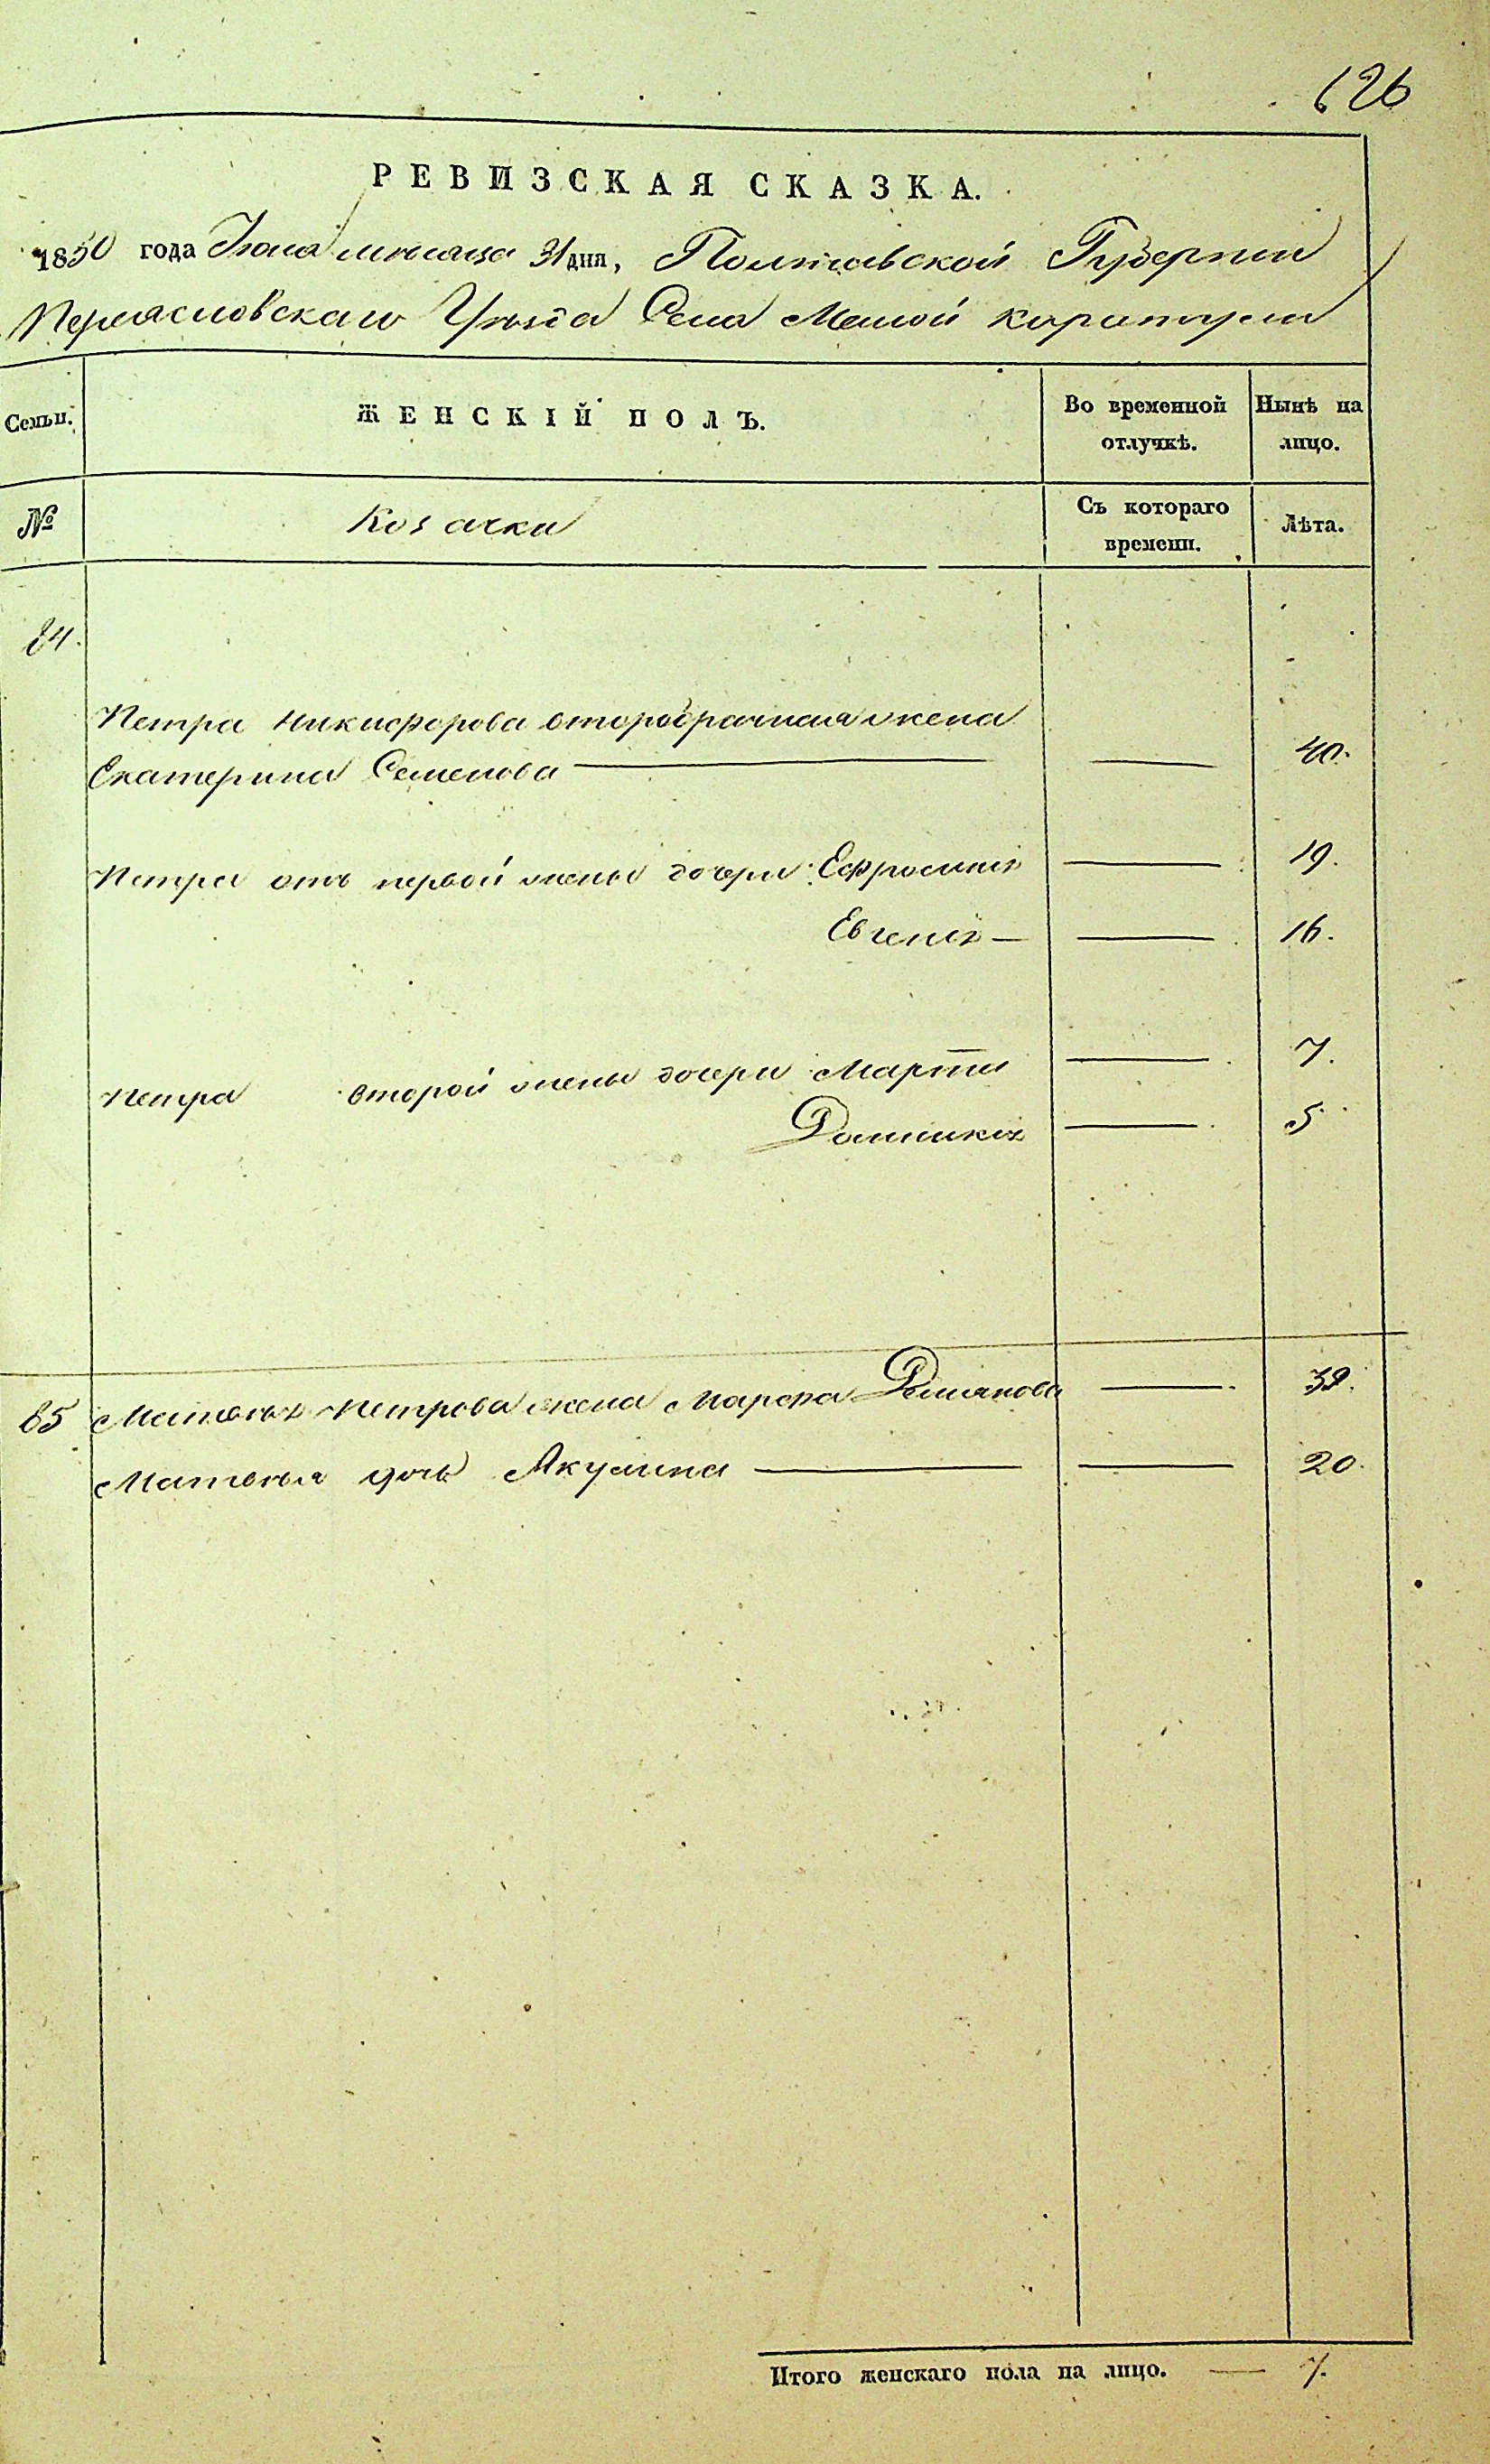 626
РЕВИЗСКАЯ СКАЗКА.
1850 года Іюля мѣсяца 31 дня, Полтавской Губерніи
Переясловскаго Уѣзда Села Малой Каратули
Семьи. ЖЕНСКІЙ ПОЛЪ. Во временной отлучкѣ. Нынѣ на лицо.
№ Козачки Съ котораго времени. Лѣта.
84.
Петра Никифорова второбрачная жена
Екатерина Семенова — — 40.
Петра отъ первой жены дочери: Ефросинія — 19.
Евгенія — — 16.
Петра второй жены дочери Марта — 7.
Домникія — 5.
85 Матвѣя Петрова жена Марфа Демянова — 39.
Матвѣя дочь Акулина — — 20.
Итого женскаго пола на лицо. — 7.